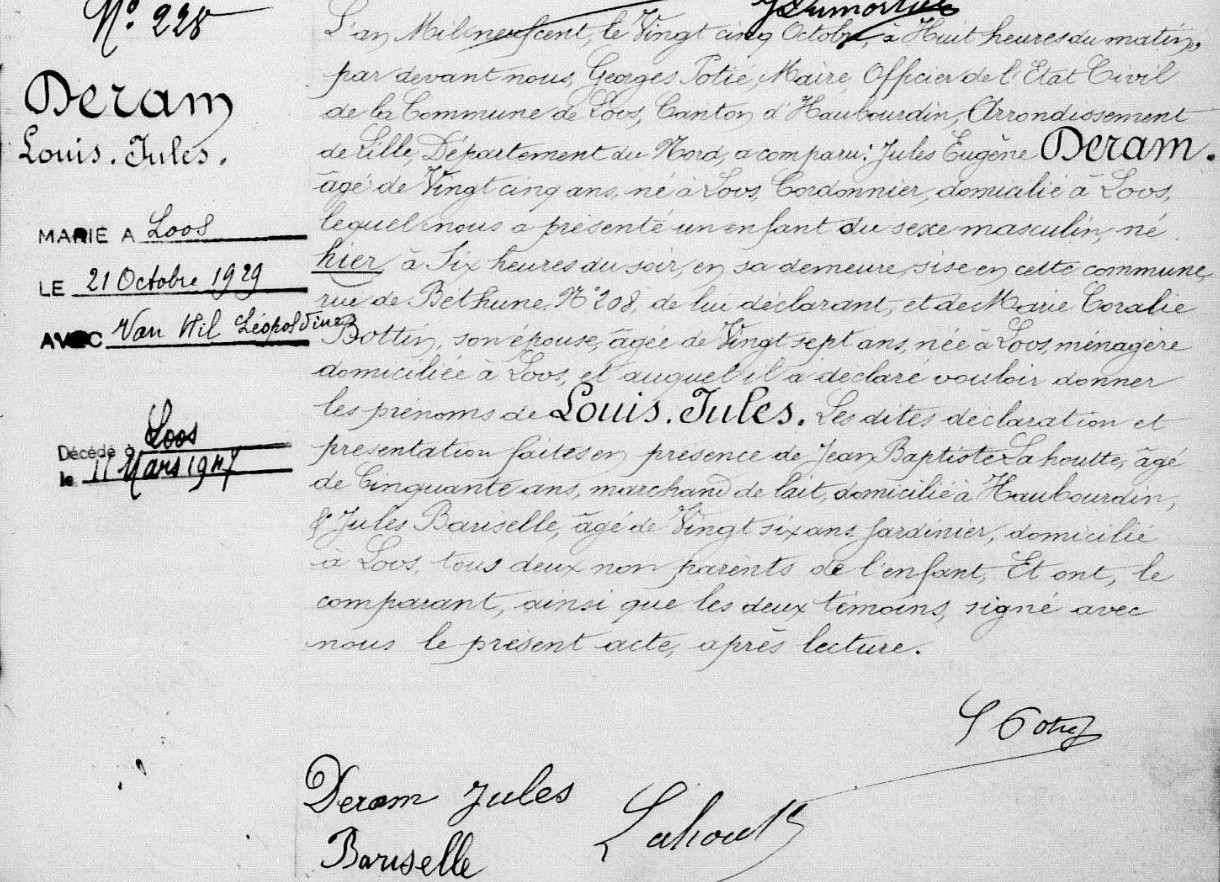 Nº 228
Deram
Louis. Jules.
MARIE A Loos
LE 21 Octobre 1929
AVEC Van Wil Léopoldine
Décédé à Loos
le 11 Mars 1947
Dumortier
L'an Mil neuf cent, le Vingt cinq Octobre, à Huit heures du matin,
par devant nous, Georges Potié, Maire, Officier de l'Etat Civil
de la Commune de Loos, Canton d'Haubourdin, Arrondissement
de Lille, Département du Nord, a comparu: Jules Eugène Deram.
âgé de Vingt cinq ans, né à Loos, Cordonnier, domicilié à Loos,
lequel nous a présenté un enfant du sexe masculin, né
hier, à Six heures du soir, en sa demeure sise en cette commune,
rue de Béthune Nº 208, de lui déclarant, et de Marie Coralie
Bottin, son épouse, âgée de Vingt sept ans, née à Loos, ménagère
domiciliée à Loos, et auquel il a déclaré vouloir donner
les prénoms de Louis. Jules. Les dites déclaration et
présentation faites en présence de Jean Baptiste Lahoutte, âgé
de Cinquante ans, marchand de lait, domicilié à Haubourdin,
& Jules Bariselle, âgé de Vingt six ans, jardinier, domicilié
à Loos, tous deux non parents de l'enfant, Et ont, le
comparant, ainsi que les deux témoins, signé avec
nous le présent acte, après lecture.
G Potié
Deram Jules
Lahoutte
Bariselle